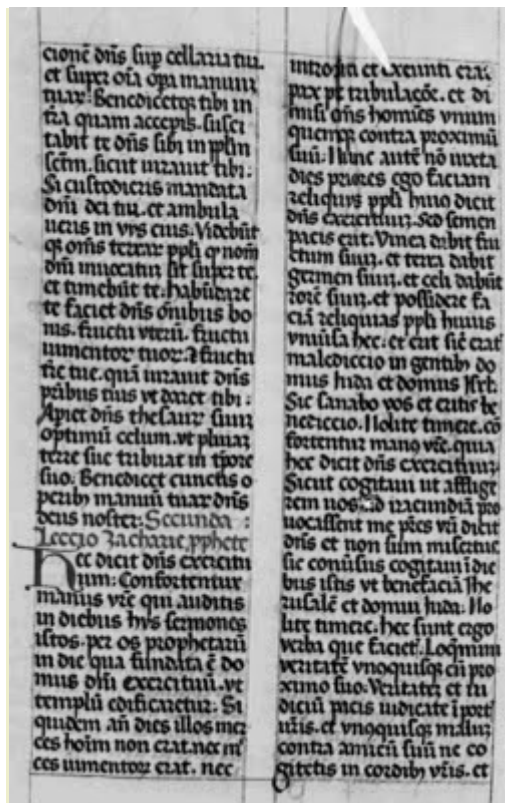 cionē dn̄s sup cellaria tua.
et super oīa opa manuum
tuar. Benedicetqȝ tibi in
tr̄a quam acceperis. Susci
tabit te dn̄s sibi in pplm
sc̄tm. sicut iurauit tibi.
Si custodieris mandata
dn̄i dei tui. et ambula
ueris in vijs eius. Videbūt
qȝ om̄s terrar ppli qȝ nom̄
dn̄i inuocatū sit super te.
et timebūt te. habūdare
te faciet dn̄s ōnibus bo
nis. fructu vteri. fructu
iumentor tuor. ⁊ fructu
tr̄e tue. quā iurauit dn̄s
pr̄ibus tuis vt daret tibi.
Apiet dn̄s thesaur suū
optimū celum. vt pluuiaȝ
terre sue tribuat in tp̄ore
suo. Benedicet cunctis o
peribȝ manuū tuar dn̄s
deus noster. Secunda
Leccio Zacharie pphete
Hec dicit dn̄s exercitu
um. Confortentur
manus vr̄e qui auditis
in diebus hijs sermones
istos. per os prophetarū
in die qua fundata ē do
mus dn̄i exercituū. vt
templū edificaretur. Si
quidem an̄ dies illos mer
ces hoīm non erat. nec m̄
ces iumentor erat. nec
introeūti et exeunti erat
pax pr̄ tribulacōe. et di
misi om̄s homīes vnum
quemqȝ contra proximū
suū. Nunc autē nō iuxta
dies priores ego faciam
reliquijs ppli huiȝ dicit
dn̄s exercituū. Sed semen
pacis erit. Vinea dabit fru
ctum suū. et terra dabit
germen suū. et celi dabūt
rorē suū. et possidere fa
ciā reliquias ppli huius
vniuersa hec. et erit sic̄ erat
malediccio in gentibȝ do
mus Iuda et domus Isrl.
Sic saluabo vos et eritis be
nediccio. Nolite timere. cō
fortentur manȝ vr̄e. quia
hec dicit dn̄s exercituū.
Sicut cogitaui ut afflige
rem uos. ad iracundiā pro
uocassent me pr̄es vr̄i dicit
dn̄s et non sum misertus
sic conūsus cogitaui ī die
bus istis vt benefaciā Ihe
rusalē et domui Iuda. No
lite timere. hec sunt ergo
verba que facietȝ. Loqȝmini
veritatē vnusquisqȝ cū pro
ximo suo. Veritatē et iu
diciū pacis iudicate ī port̄
vr̄is. et vnusquisqȝ maluȝ
contra amicū suū ne co
gitetis in cordibȝ vr̄is. et